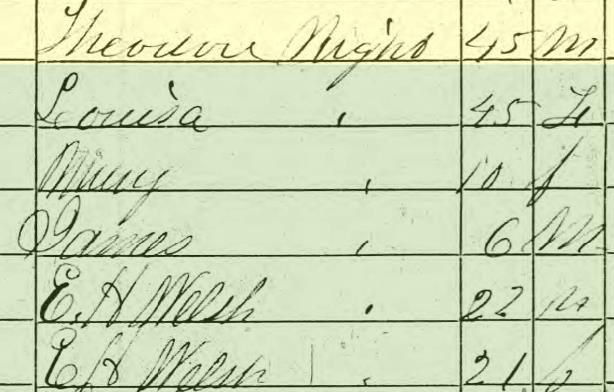 Theodore Night 45 M
Louisa " 45 F
Mary " 10 f
James " 6 M
E. H Welsh " 22 m
E H Welsh " 21 f